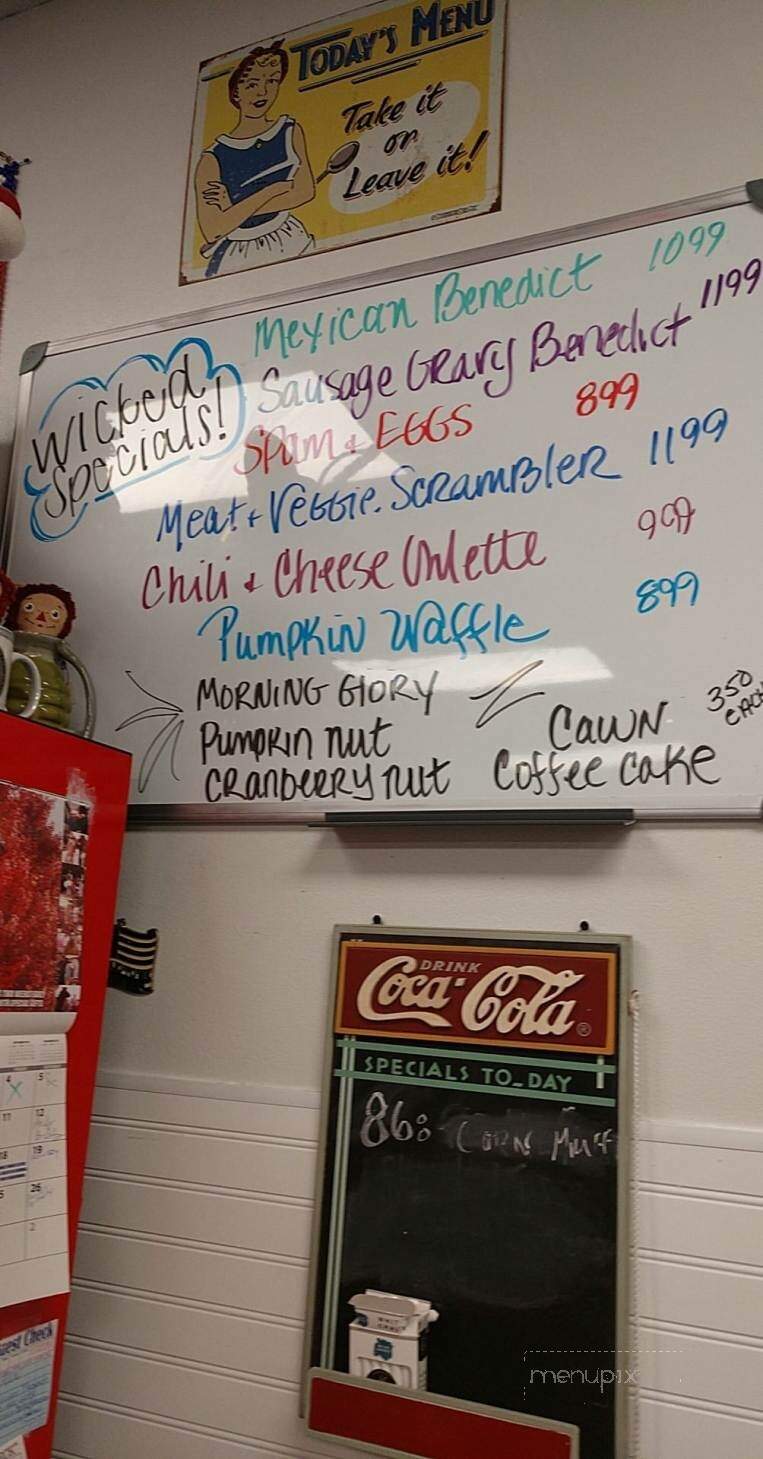 TODAY'S MENU
Take it
or
Leave it!
Wicked
Specials!
Mexican Benedict 1099
Sausage Gravy Benedict 1199
Spam + EGGS 899
Meat + Veggie. Scrambler 1199
Chili + Cheese Omlette 999
Pumpkin Waffle 899
MORNING GlORY
Pumpkin nut
CRanbeRRY nut
CAWN
Coffee Cake
350
DRINK
Coca-Cola
SPECIALS TO-DAY
86: CORN Muff
4 5
11 12
18 19
26
2
Guest Check
menupix